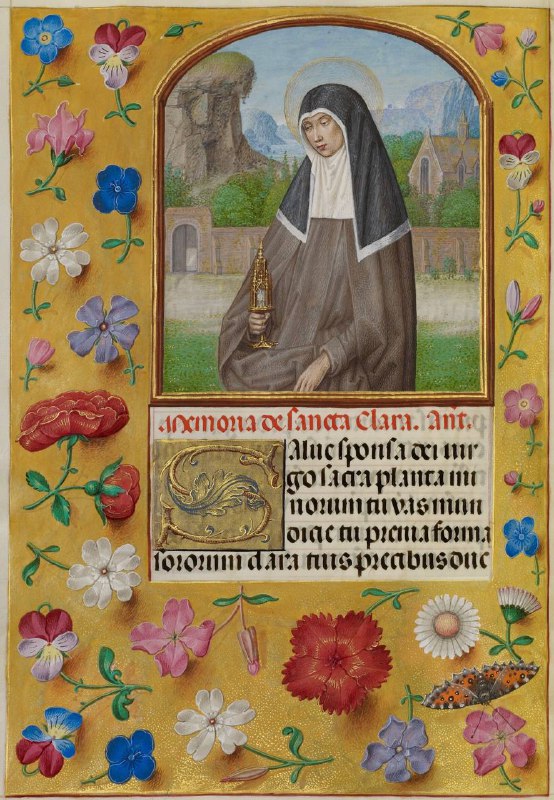 Memoria de sancta Clara. Ant.
Salue sponsa dei uir
go sacra planta mi
norum tu vas mun
dicie tu preuia forma
sororum clara tuis precibus duc